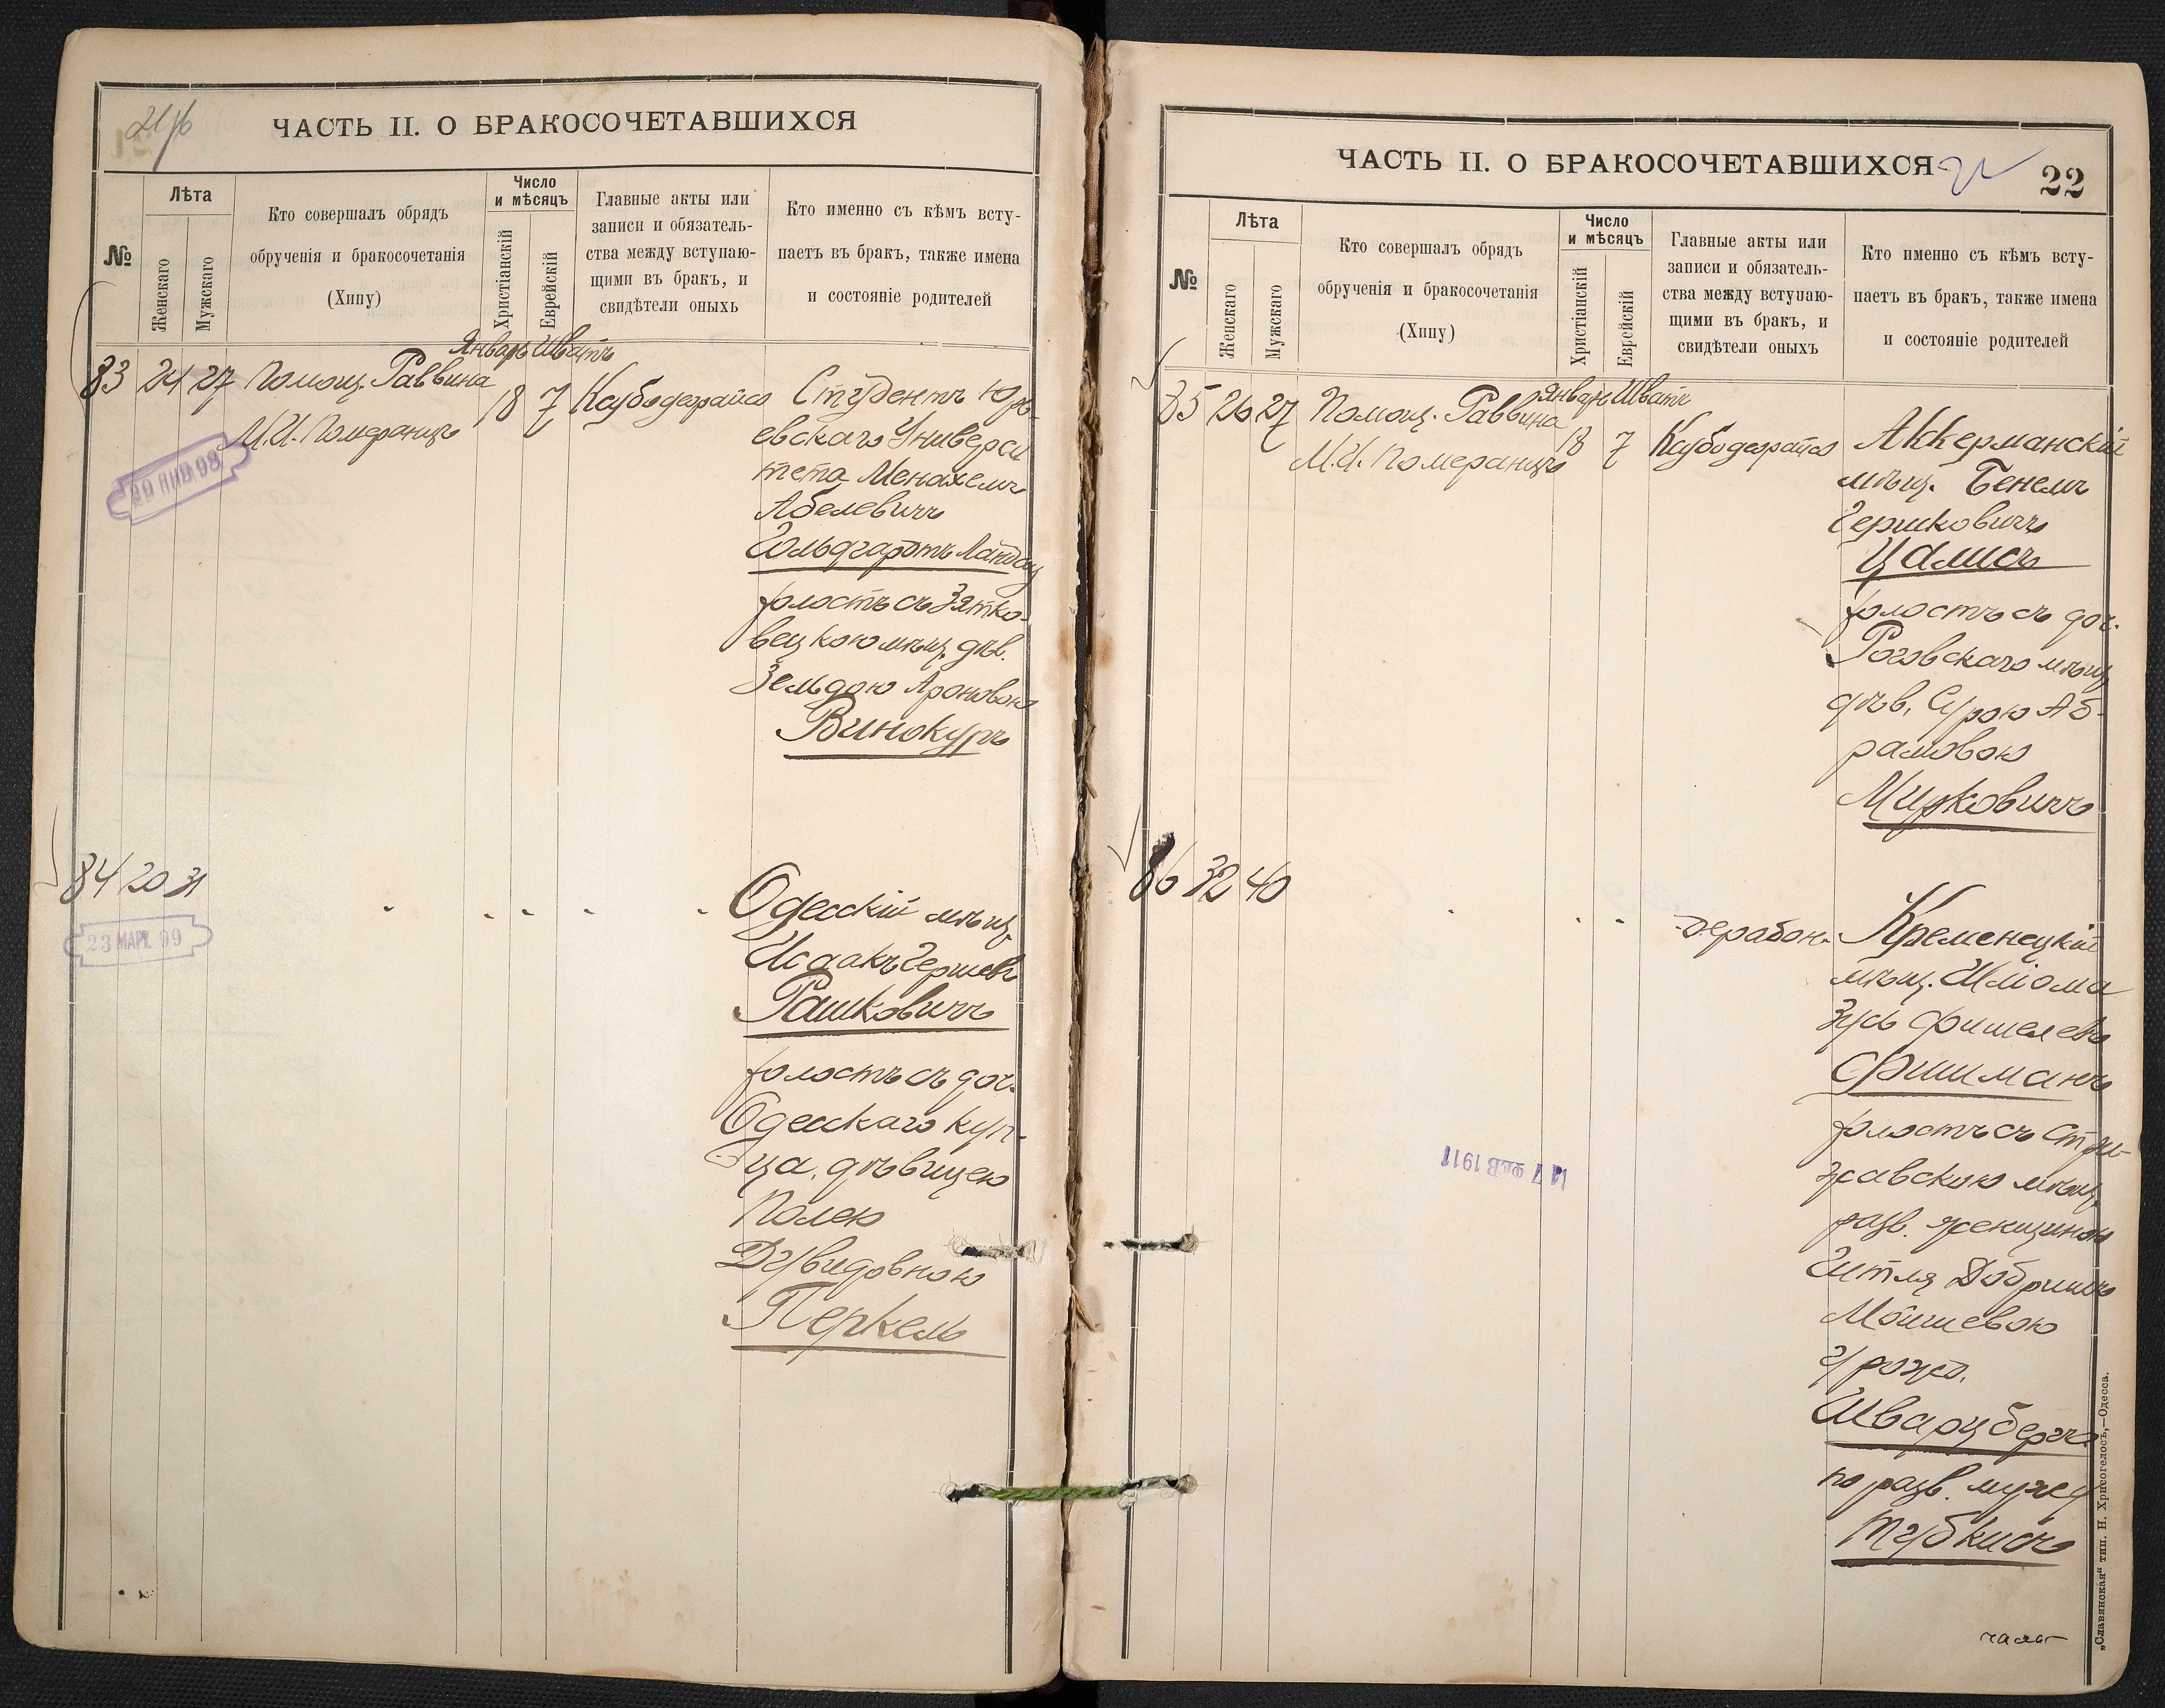 ЧАСТЬ II. О БРАКОСОЧЕТАВШИХСЯ
№
Лѣта
Женскаго
Мужскаго
Кто совершалъ обрядъ
обрученія и бракосочетанія
(Хипу)
Число
и мѣсяцъ
Христіанскій
Еврейскій
Главные акты или
записи и обязатель-
ства между вступаю-
щими въ бракъ, и
свидѣтели оныхъ
Кто именно съ кѣмъ всту-
паетъ въ бракъ, также имена
и состояніе родителей
Январь Шватъ
83 24 27 Помощ. Раввина 18 7 Кусбодерайсо
М.И. Померанцъ
Студентъ Юрь-
евскаго Универси
тета Менахемъ
Абелевичъ
Гольдгартъ Ландау
холостъ съ Зятко-
вецкою мѣщ. дѣв.
Зельдою Ароновою
Винокуръ
84 20 31
23 МАР. 99
Одесскій мѣщ.
Исаакъ Гершевъ
Рашковичъ
холостъ съ доч.
Одесскаго куп-
ца, дѣвицею
Полею
Дувидовною
Перкель
ЧАСТЬ II. О БРАКОСОЧЕТАВШИХСЯ
22
№
Лѣта
Женскаго
Мужскаго
Кто совершалъ обрядъ
обрученія и бракосочетанія
(Хипу)
Число
и мѣсяцъ
Христіанскій
Еврейскій
Главные акты или
записи и обязатель-
ства между вступаю-
щими въ бракъ, и
свидѣтели оныхъ
Кто именно съ кѣмъ всту-
паетъ въ бракъ, также имена
и состояніе родителей
Январь Шватъ
85 26 27 Помощ. Раввина 18 7 Кусбодерайсо
М.И. Померанцъ
Аккерманскій
мѣщ. Бенемъ
Гершковичъ
Цалисъ
холостъ съ доч.
Роговскаго мѣщ.
дѣв. Сурою Аб-
рамовою
Мирковичъ
86 32 40
дерабон.
Кременецкій
мѣщ. Шліома
Зусь Фишелевъ
Фишманъ
холостъ съ Стри-
жавскою мѣщ.
разв. женщиною
Гитля Добришъ
Мошиевою
урожд.
Шварцбергъ
по разв. мужу
Тубкисъ
17 ФЕВ 1911
„Славянская“ тип. Н. Хрисогелосъ,—Одесса.